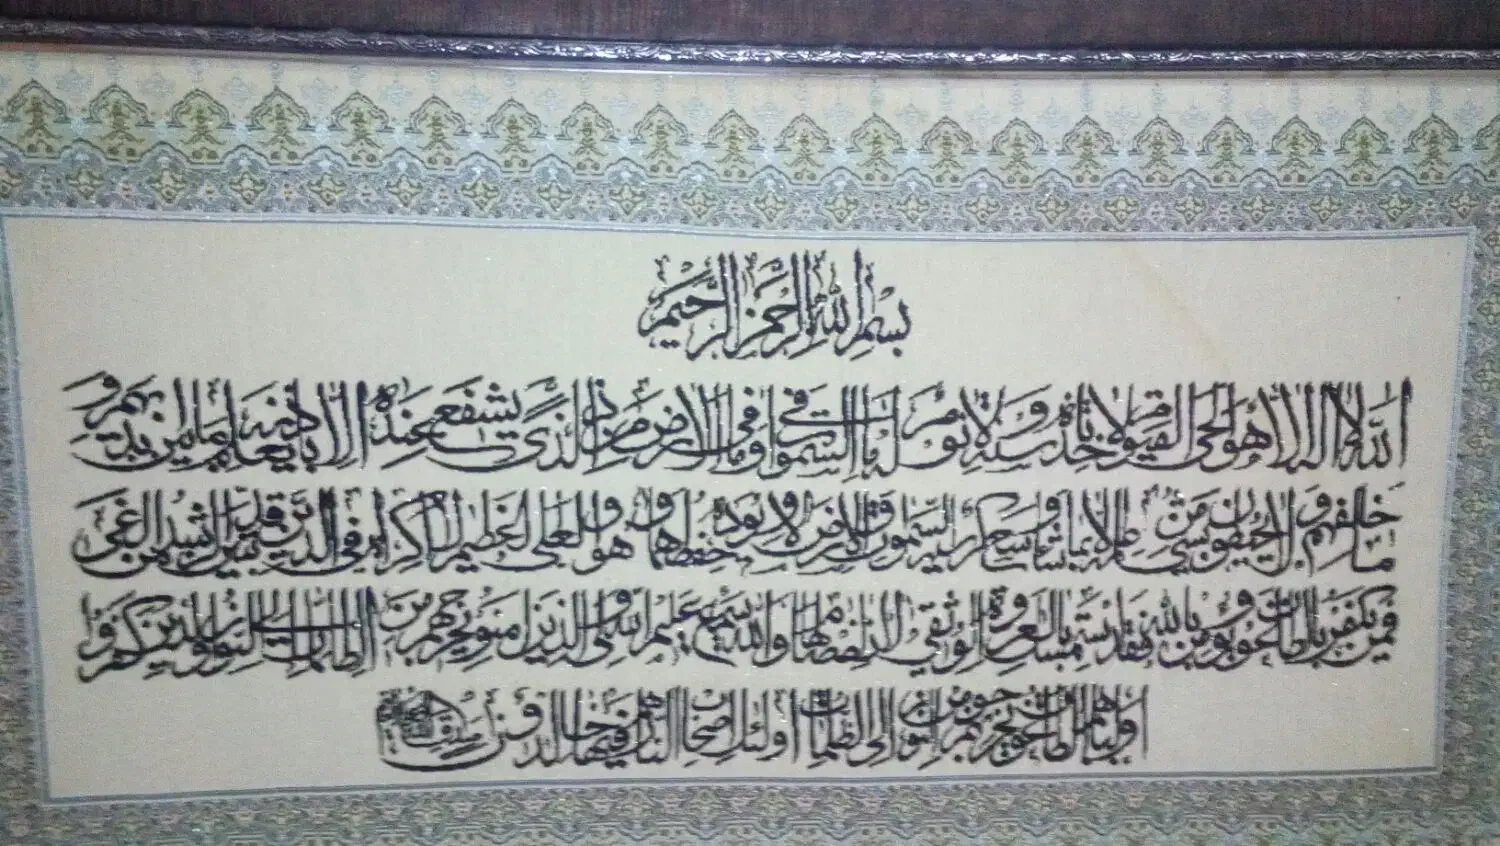 بسم الله الرحمن الرحيم
الله لا اله الا هو الحی القیوم لا تأخذه سنة ولا نوم له ما فی السموات وما فی الارض من ذا الذی یشفع عنده الا باذنه یعلم ما بین ایدیهم و
ما خلفهم ولا یحیطون بشیء من علمه الا بما شاء وسع کرسیه السموات والارض ولا یؤده حفظهما وهو العلی العظیم لا اکراه فی الدین قد تبین الرشد من الغی
فمن یکفر بالطاغوت ویؤمن بالله فقد استمسک بالعروة الوثقی لا انفصام لها والله سمیع علیم الله ولی الذین امنوا یخرجهم من الظلمات الی النور والذین کفروا
اولیاؤهم الطاغوت یخرجونهم من النور الی الظلمات اولئک اصحاب النار هم فیها خالدون